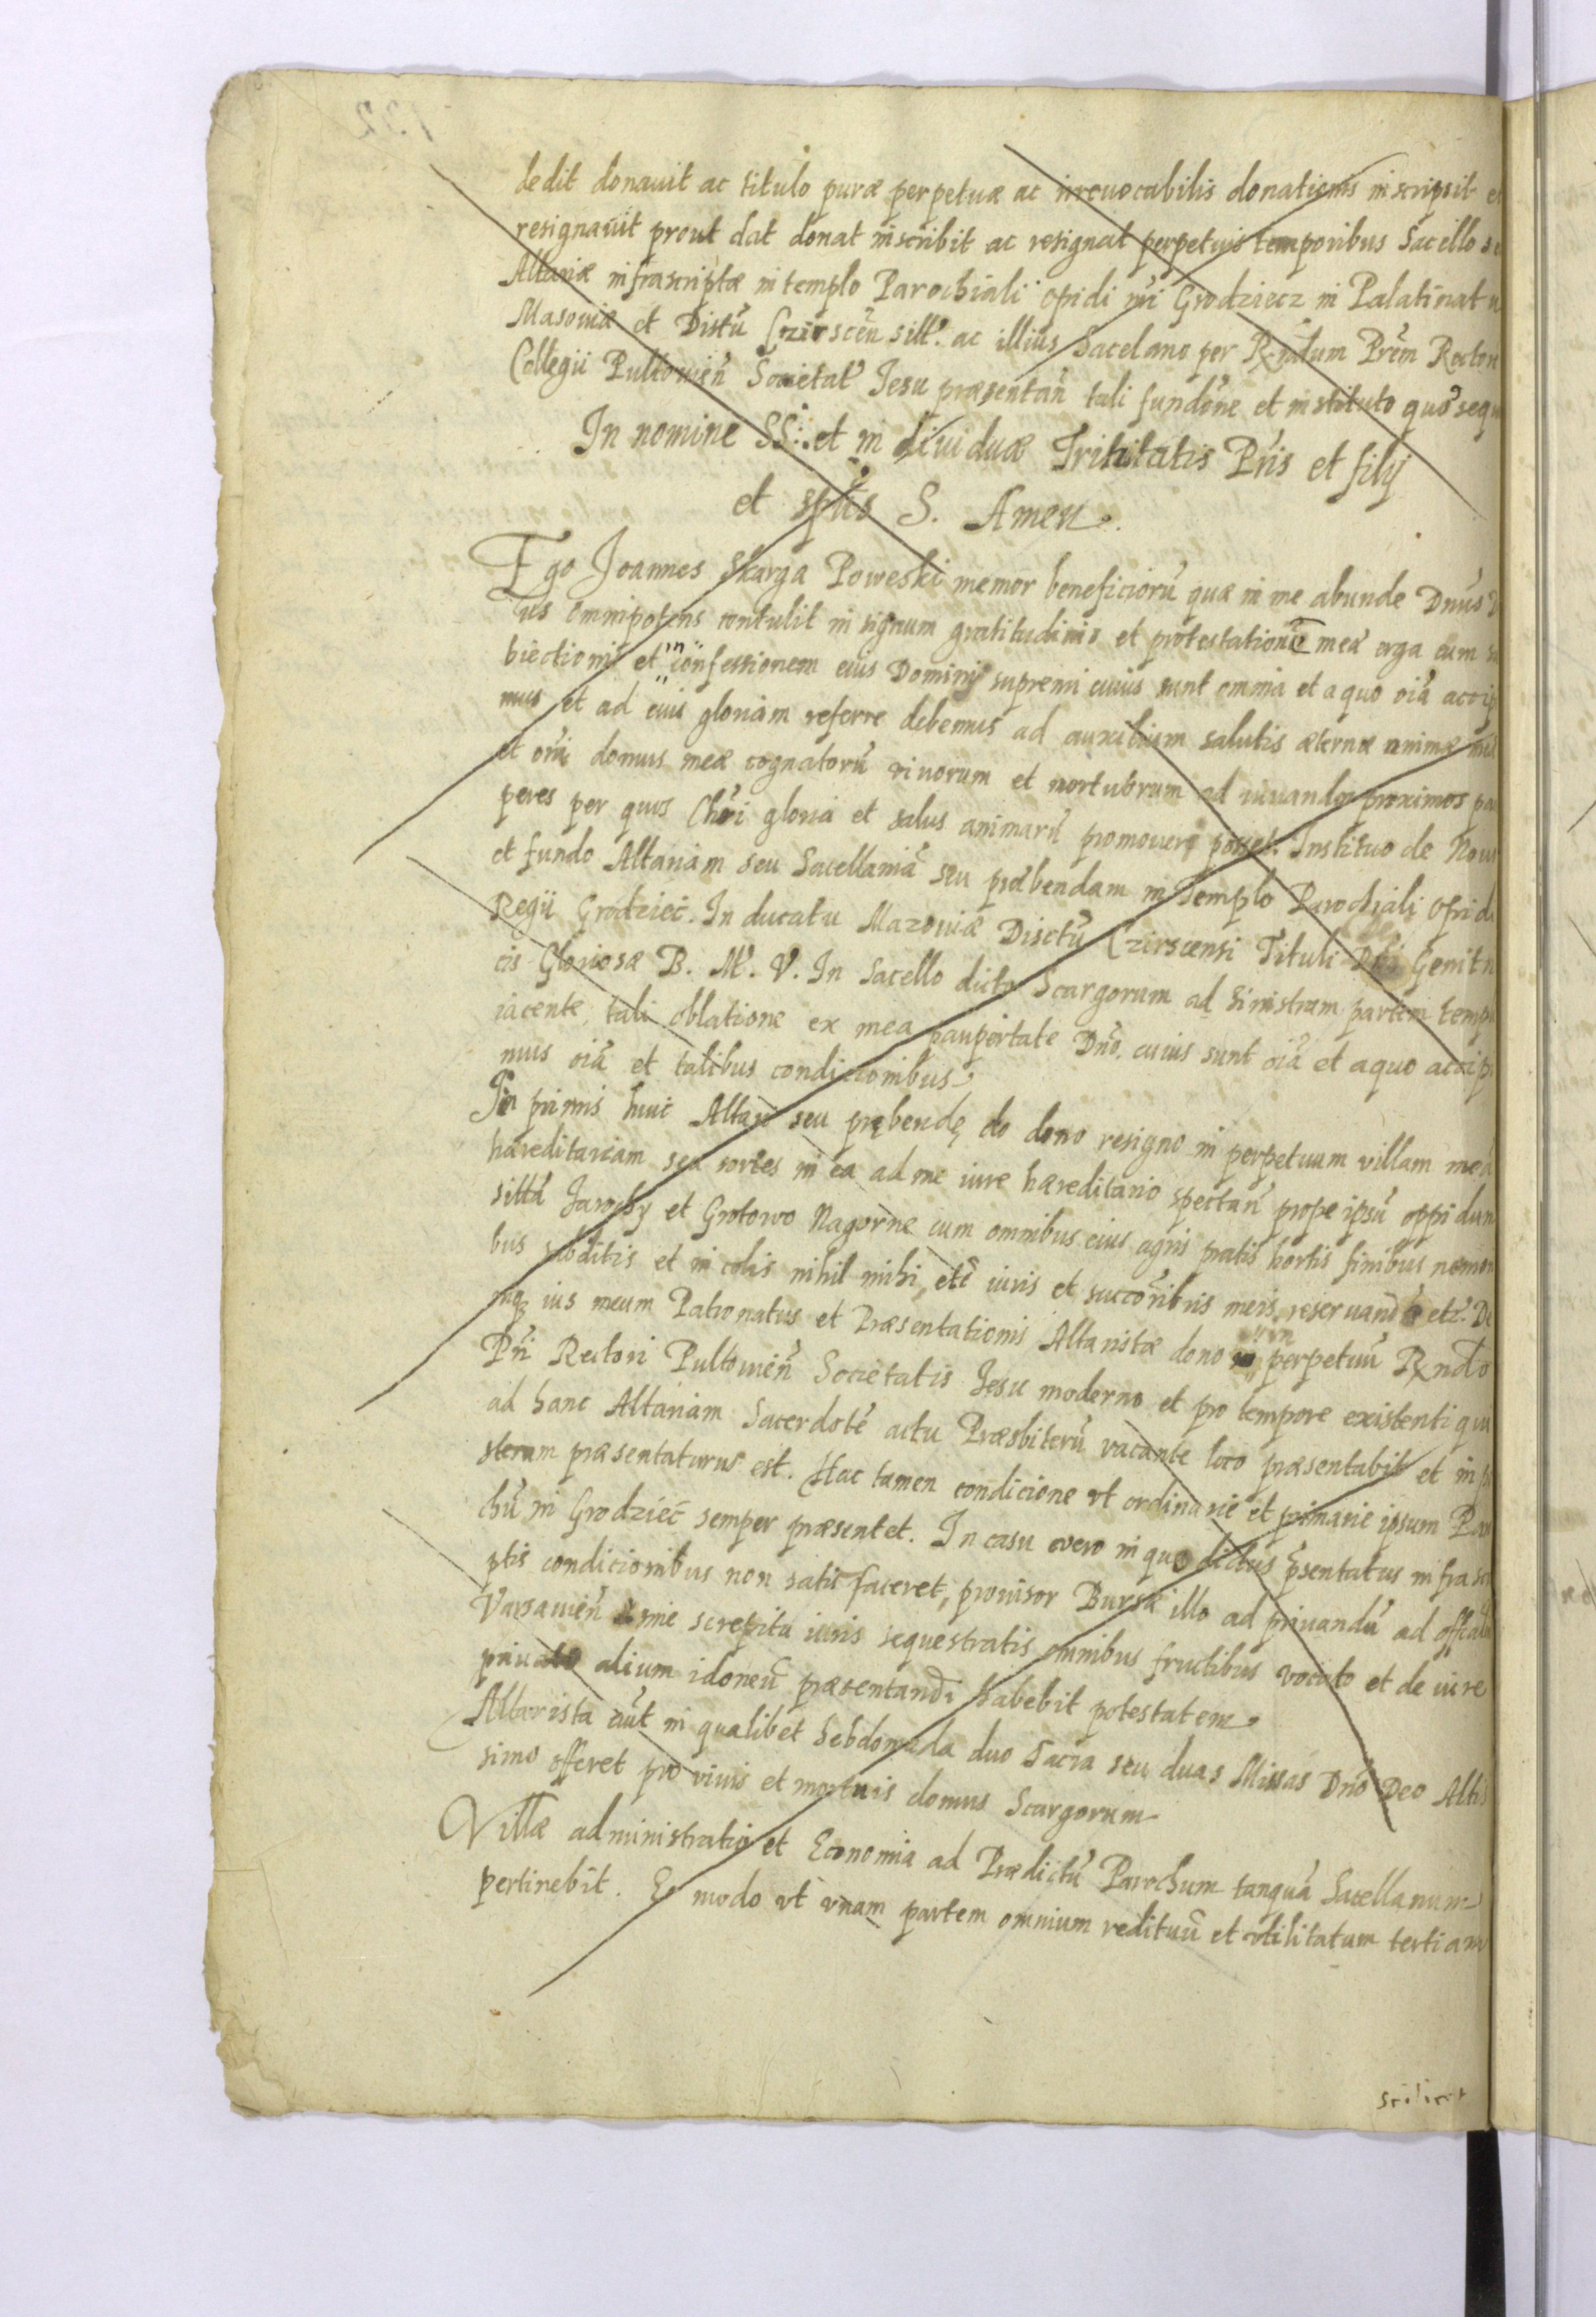 dedit donauit ac titulo puræ perpetuæ ac irreuocabilis donationis inscripsit et
resignauit prout dat donat inscribit ac resignat perpetuis temporibus Sacello
Altariæ infrascriptæ in templo Parochiali opidi Grodziecz in Palatinatu
Masoviæ et Distũ Czirscẽn sitt. ac illius Sacelano per Rndum Prẽm Rector
Collegii Pultouien̄ Societat Iesu præsentan̄ tali fundõne et instituto
In nomine SS: et individuæ Trinitatis Pris et filij
et sptũs S. Amen.
Ego Joannes Skarga Poweski memor beneficiorũ quæ in me abunde Dnũs D
us omnipotens contulit in signum gratitudinis et protestationẽ meæ erga eum su
biectionis et in confessionem eius Dominij supremi cuius sunt omnia et a quo oiã accip
mus et ad eius gloriam referre debemus ad auxilium salutis æternæ animæ
et domus meæ cognatorũ viuorum et mortuorum ad iuuandos proximos pau
peres per quos Chri gloria et salus animarũ promoueri posset. Instituo de Nouo
et fundo Altariam seu Sacellaniã seu præbendam in Templo Parochiali opid
Regii Grodziec. In ducatu Mazouiæ Disctũ Czirscensi Tituli Dei Genitri
cis Gloriosæ B. M. V. In Sacello dicto Scargorum ad sinistram partem templi
iacente, tali oblatione ex mea paupertate Dnõ, cuius sunt oiã et a quo accipi
mus oiã et talibus condicionibus
In primis huic Altari seu prębendę do dono resigno in perpetuum villam meã
hæreditariam seu sortes in ea ad me iure hæreditario spectan̄ prope ipsũ oppidum
sittã Jarochy et Grotowo Nagorne cum omnibus eius agris pratis hortis finibus nemori
bus subditis et incolis nihil mihi, iuris et succõribus meis reseruando etr. De
ius meum Patronatus et Præsentationis Altaristæ dono in perpetuũ Rndo
Pri Rectori Pultouien̄ Societatis Iesu moderno et pro tempore existenti qui
ad hanc Altariam Sacerdotẽ actu Præsbiterũ vacante loco præsentabit et in po
sterum præsentaturus est. Hac tamen condicione vt ordinarie et primarie ipsum Paro
chũ in Grodziec semper præsentet. In casu vero in quo dictus p̃sentatus infrascri
ptis condicionibus non satisfaceret, prouisor Bursæ illo ad priuandũ ad
Varsauien̄ sine screpitu iuris sequestratis omnibus fructibus vocato et de iure
priuato alium idoneũ præsentandi habebit potestatem.
Altarista aũt in qualibet hebdomada duo Sacra seu duas Missas Dnõ Deo Altis
simo offeret pro viuis et mortuis domus Scargorum
Villæ administratio et Economia ad Prædictũ Parochum tanquã Sacellanum
pertinebit. Eo modo vt vnam partem omnium redituũ et vtilitatum tertiam
scilicet